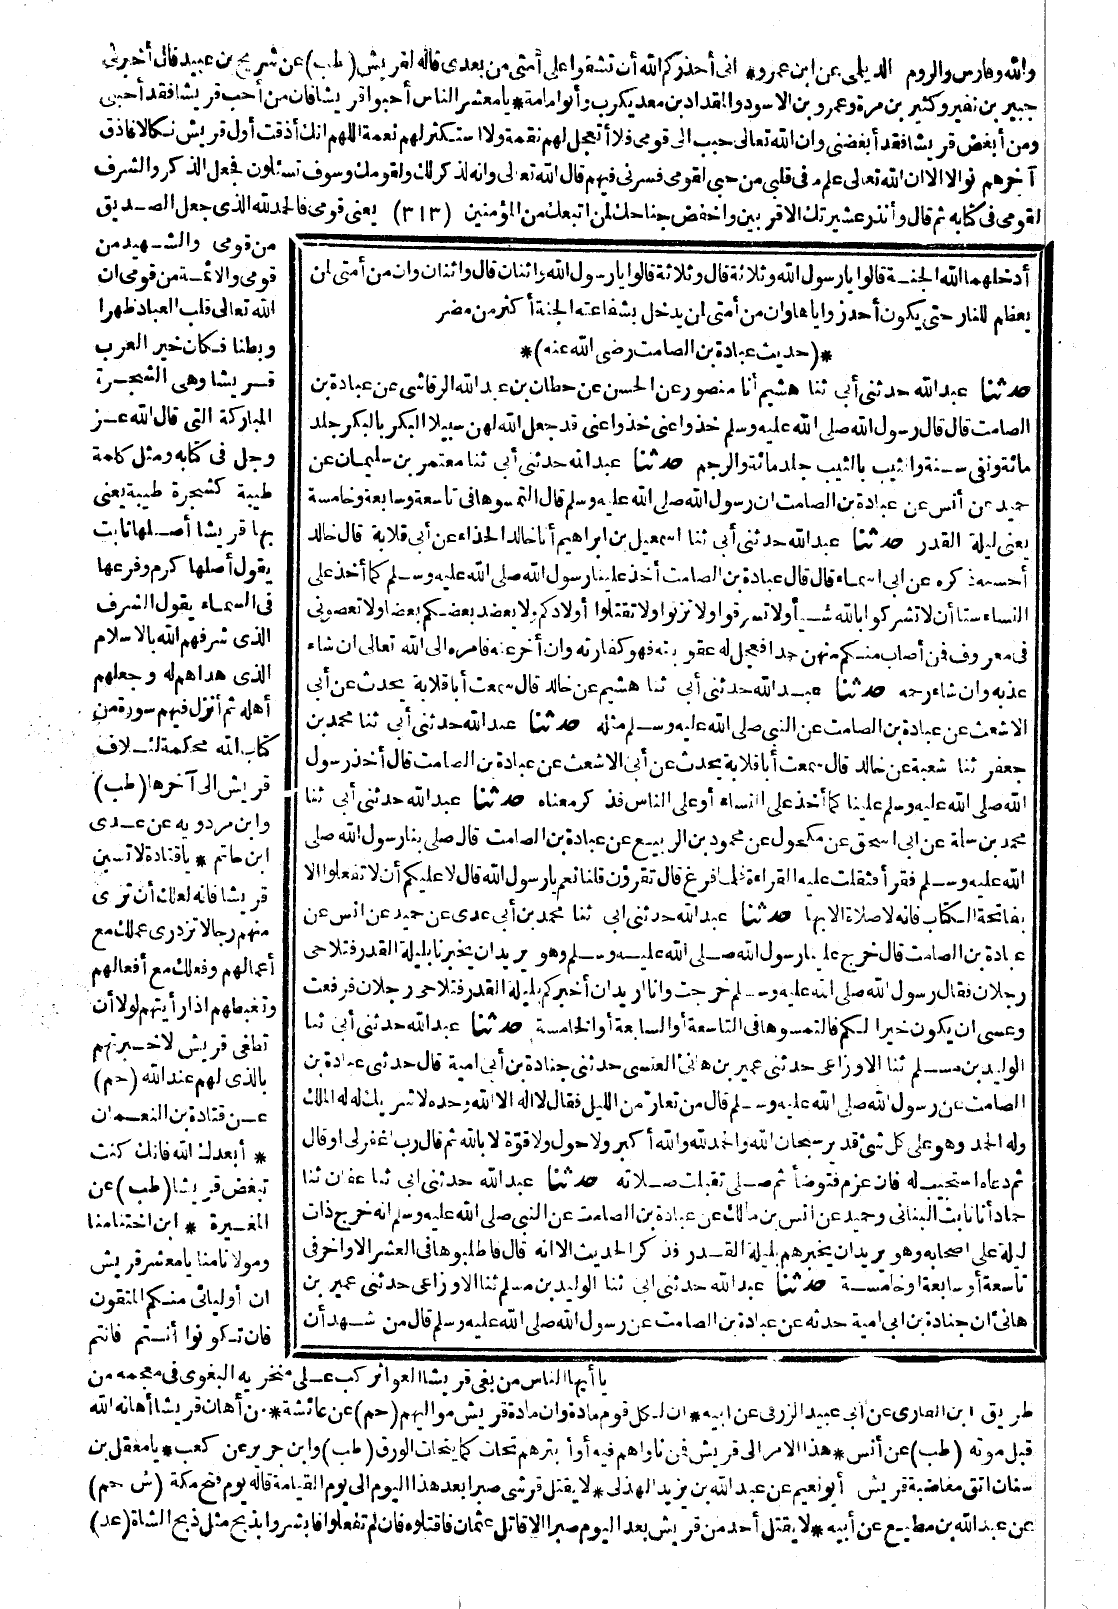 والله وفارس والروم الديلمى عن ابن عمرو * انى أحذركم الله أن تشقوا على أمتى من بعدى قاله لقريش (طب) عن شريح بن عبيد قال أخبرنى
جبير بن نفير وكثير بن مرة وعمرو بن الاسود والمقداد بن معد يكرب وأبو امامة * يا معشر الناس أحبوا قريشا فان من أحب قريشا فقد أحبنى
ومن أبغض قريشا فقد أبغضنى وان الله تعالى حبب الى قومى فلا أتعجل لهم نقمة ولا استكثر لهم نعمة اللهم انك أذقت أول قريش نكالا فاذق
آخرهم نوالا الا ان الله تعالى علم مافى قلبى من حبى لقومى فسرنى فيهم قال الله تعالى وانه لذكر لك ولقومك وسوف تسئلون فجعل الذكر والشرف
لقومى فى كتابه ثم قال وأنذر عشيرتك الاقربين واخفض جناحك لمن اتبعك من المؤمنين (٣١٣) يعنى قومى فالحمد لله الذى جعل الصديق
من قومى والشهيد من
قومى والائمة من قومى ان
الله تعالى قلب العباد ظهرا
وبطنا فكان خير العرب
قريشا وهى الشجرة
المباركة التى قال الله عز
وجل فى كتابه ومثل كلمة
طيبة كشجرة طيبة يعنى
بها قريشا أصلها ثابت
يقول أصلها كرم وفرعها
فى السماء يقول الشرف
الذى شرفهم الله بالاسلام
الذى هداهم له وجعلهم
أهله ثم أنزل فيهم سورة من
كتاب الله محكمة لئيلاف
قريش الى آخرها (طب)
وابن مردويه عن عدى
ابن حاتم * يا قتادة لا تسبن
قريشا فانه لعلك أن ترى
منهم رجالا تزدرى عملك مع
أعمالهم وفعلك مع أفعالهم
وتغبطهم اذا رأيتهم لولا أن
تطغى قريش لاخبرتهم
بالذى لهم عند الله (حم)
عن قتادة بن النعمان
* أبعدك الله فانك كنت
تبغض قريشا (طب) عن
المغيرة * ابن اختنا منا
ومولانا منا يا معشر قريش
ان أوليائى منكم المتقون
فان تكونوا أنتم فانتم
أدخلهما الله الجنة قالوا يا رسول الله وثلاثة قال وثلاثة قالوا يا رسول الله واثنان قال واثنان وان من أمتى لمن
يعظم للنار حتى يكون أحد زواياها وان من أمتى لمن يدخل بشفاعته الجنة أكثر من مضر
*(حديث عبادة بن الصامت رضى الله عنه)*
حدثنا عبد الله حدثنى أبى ثنا هشيم أنا منصور عن الحسن عن حطان بن عبد الله الرقاشى عن عبادة بن
الصامت قال قال رسول الله صلى الله عليه وسلم خذوا عنى خذوا عنى قد جعل الله لهن سبيلا البكر بالبكر جلد
مائة ونفى سنة والثيب بالثيب جلد مائة والرجم حدثنا عبد الله حدثنى أبى ثنا معتمر بن سليمان عن
حميد عن أنس عن عبادة بن الصامت ان رسول الله صلى الله عليه وسلم قال التمسوها فى تاسعة وسابعة وخامسة
يعنى ليلة القدر حدثنا عبد الله حدثنى أبى ثنا اسمعيل بن ابراهيم أنا خالد الحذاء عن أبى قلابة قال خالد
أحسبه ذكره عن ابى اسماء قال قال عبادة بن الصامت أخذ علينا رسول الله صلى الله عليه وسلم كما أخذ على
النساء ستا أن لا تشركوا بالله شيأ ولا تسرقوا ولا تزنوا ولا تقتلوا أولادكم ولا يعضد بعضكم بعضا ولا تعصونى
فى معروف فمن أصاب منكم منهن حدا فعجل له عقوبته فهو كفارته وان أخر عنه فامره الى الله تعالى ان شاء
عذبه وان شاء رحمه حدثنا عبد الله حدثنى أبى ثنا هشيم عن خالد قال سمعت أبا قلابة يحدث عن أبى
الاشعث عن عبادة بن الصامت عن النبى صلى الله عليه وسلم مثله حدثنا عبد الله حدثنى أبى ثنا محمد بن
جعفر ثنا شعبة عن خالد قال سمعت أبا قلابة يحدث عن أبى الاشعث عن عبادة بن الصامت قال أخذ رسول
الله صلى الله عليه وسلم علينا كما أخذ على النساء أو على الناس فذكر معناه حدثنا عبد الله حدثنى أبى ثنا
محمد بن سلمة عن ابى اسحق عن مكحول عن محمود بن الربيع عن عبادة بن الصامت قال صلى بنا رسول الله صلى
الله عليه وسلم فقرأ فثقلت عليه القراءة فلما فرغ قال تقرؤن قلنا نعم يا رسول الله قال لا عليكم أن لا تفعلوا الا
بفاتحة الكتاب فانه لا صلاة الا بها حدثنا عبد الله حدثنى ابى ثنا محمد بن أبى عدى عن حميد عن انس عن
عبادة بن الصامت قال خرج علينا رسول الله صلى الله عليه وسلم وهو يريد ان يخبرنا بليلة القدر فتلاحى
رجلان فقال رسول الله صلى الله عليه وسلم خرجت وانا اريد ان أخبركم بليلة القدر فتلاحى رجلان فرفعت
وعسى ان يكون خيرا لكم فالتمسوها فى التاسعة أو السابعة أو الخامسة حدثنا عبد الله حدثنى أبى ثنا
الوليد بن مسلم ثنا الاوزاعى حدثنى عمير بن هانئ العنسى حدثنى جنادة بن أبى امية قال حدثنى عبادة بن
الصامت عن رسول الله صلى الله عليه وسلم قال من تعار من الليل فقال لا اله الا الله وحده لا شريك له له الملك
وله الحمد وهو على كل شئ قدير سبحان الله والحمد لله والله أكبر ولا حول ولا قوة لا بالله ثم قال رب اغفر لى او قال
ثم دعاه استجيب له فان عزم فتوضأ ثم صلى تقبلت صلاته حدثنا عبد الله حدثنى ابى ثنا عفان ثنا
حماد أنا ثابت البنانى وحميد عن انس بن مالك عن عبادة بن الصامت عن النبى صلى الله عليه وسلم انه خرج ذات
ليلة على اصحابه وهو يريد ان يخبرهم بليلة القدر فذكر الحديث الا انه قال فاطلبوها فى العشر الاواخر فى
تاسعة أو سابعة او خامسة حدثنا عبد الله حدثنى ابى ثنا الوليد بن مسلم ثنا الاوزاعى حدثنى عمير بن
هانئ ان جنادة بن ابى امية حدثه عن عبادة بن الصامت عن رسول الله صلى الله عليه وسلم قال من شهد أن
يا أيها الناس من بغى قريشا العواثر كب على منخريه البغوى فى معجمه من
طريق ابن القارى عن أبى عبيد الزرقى عن ابيه * ان لكل قوم مادة وان مادة قريش مواليهم (حم) عن عائشة * من أهان قريشا أهانه الله
قبل موته (طب) عن أنس * هذا الامر الى قريش فمن ناواهم فيه أو أبتزهم تحات كما يتحات الورق (طب) وابن جرير عن كعب * يا معقل بن
سنان اتق مغاضبة قريش أبو نعيم عن عبد الله بن يزيد الهذلى * لا يقتل قرشى صبرا بعد هذا اليوم الى يوم القيامة قاله يوم فتح مكة (ش حم)
عن عبد الله بن مطيع عن أبيه * لا يقتل أحد من قريش بعد اليوم صبرا الا قاتل عثمان فاقتلوه فان لم تفعلوا فابشروا بذبح مثل ذبح الشاة (عد)